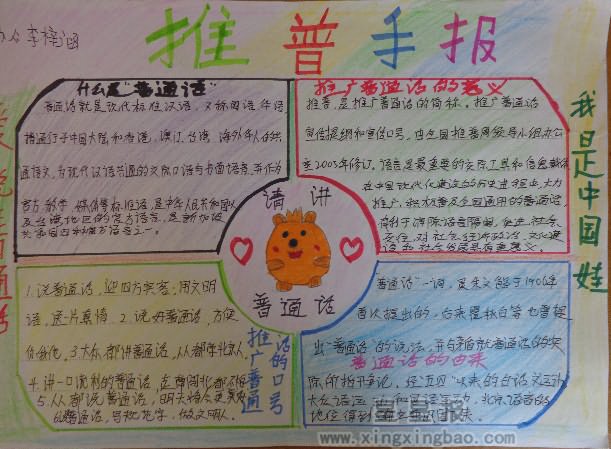 推普手报
李梓涵
爱说普通话
我是中国娃
什么是“普通话”
普通话就是现代标准汉语，又称国语、华语
普通行于中国大陆和香港、澳门、台湾、海外华人的共
通语文，为现代汉语共通的交际口语与书面语言，并作为
官方、教学、媒体等标准语，是中华人民共和国以
及台湾地区的官方语言，是新加坡
共和国四种官方语言之一。
推广普通话的意义
推普，是推广普通话的简称。推广普通话
宣传提纲和宣传口号，由全国推普周领导小组办公
室2003年修订。语言是最重要的交际工具和信息载体
在中国现代化建设的历史进程中，大力
推广、积极普及全国通用的普通话，
有利于消除语言隔阂，促进社会
交往，对社会经济政治、文化建设
和社会发展具有重要意义。
请讲
普通话
1.说普通话，迎四方宾客，用文明
语，送一片真情。2.说好普通话，方便
你我他。3.大家都讲普通话，人人都
4.讲一口流利的普通话，走南闯北都不怕
5.人人都说普通话，明天将会更美
的普通话，写规范字，做文明人。
推广普通
话的口号
“普通话”一词，是朱文熊于1906年
首次提出的，后来瞿秋白等也曾提
出“普通话”的说法，并与茅盾就普通话的实
普通话的由来
际所指展开争论，经五四以来的白话文运动、
大众语运动和国语运动，北京语音的
地位得到确立
星星报
www.xingxingbao.com